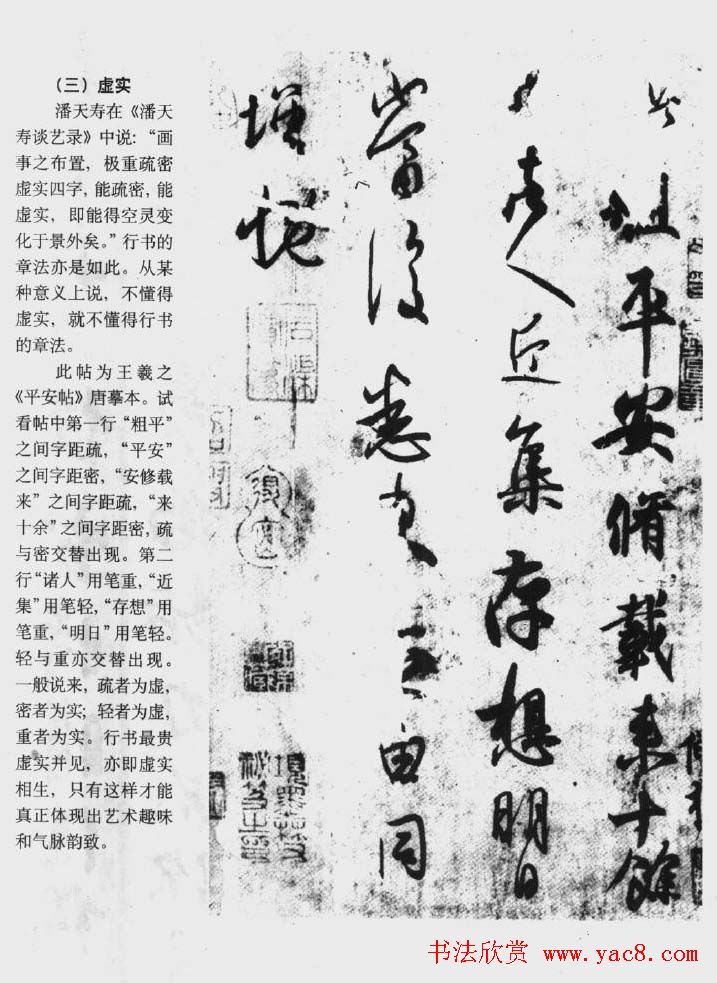 （三）虚实
潘天寿在《潘天
寿谈艺录》中说：“画
事之布置，极重疏密
虚实四字，能疏密，能
虚实，即能得空灵变
化于景外矣。”行书的
章法亦是如此。从某
种意义上说，不懂得
虚实，就不懂得行书
的章法。
此帖为王羲之
《平安帖》唐摹本。试
看帖中第一行“粗平”
之间字距疏，“平安”
之间字距密，“安修载
来”之间字距疏，“来
十余”之间字距密，疏
与密交替出现。第二
行“诸人”用笔重，“近
集”用笔轻，“存想”用
笔重，“明日”用笔轻。
轻与重亦交替出现。
一般说来，疏者为虚，
密者为实；轻者为虚，
重者为实。行书最贵
虚实并见，亦即虚实
相生，只有这样才能
真正体现出艺术趣味
和气脉韵致。
此粗平安脩載来十餘
日諸人近集存想明日
當復悉来无由同
增慨
书法欣赏 www.yac8.com